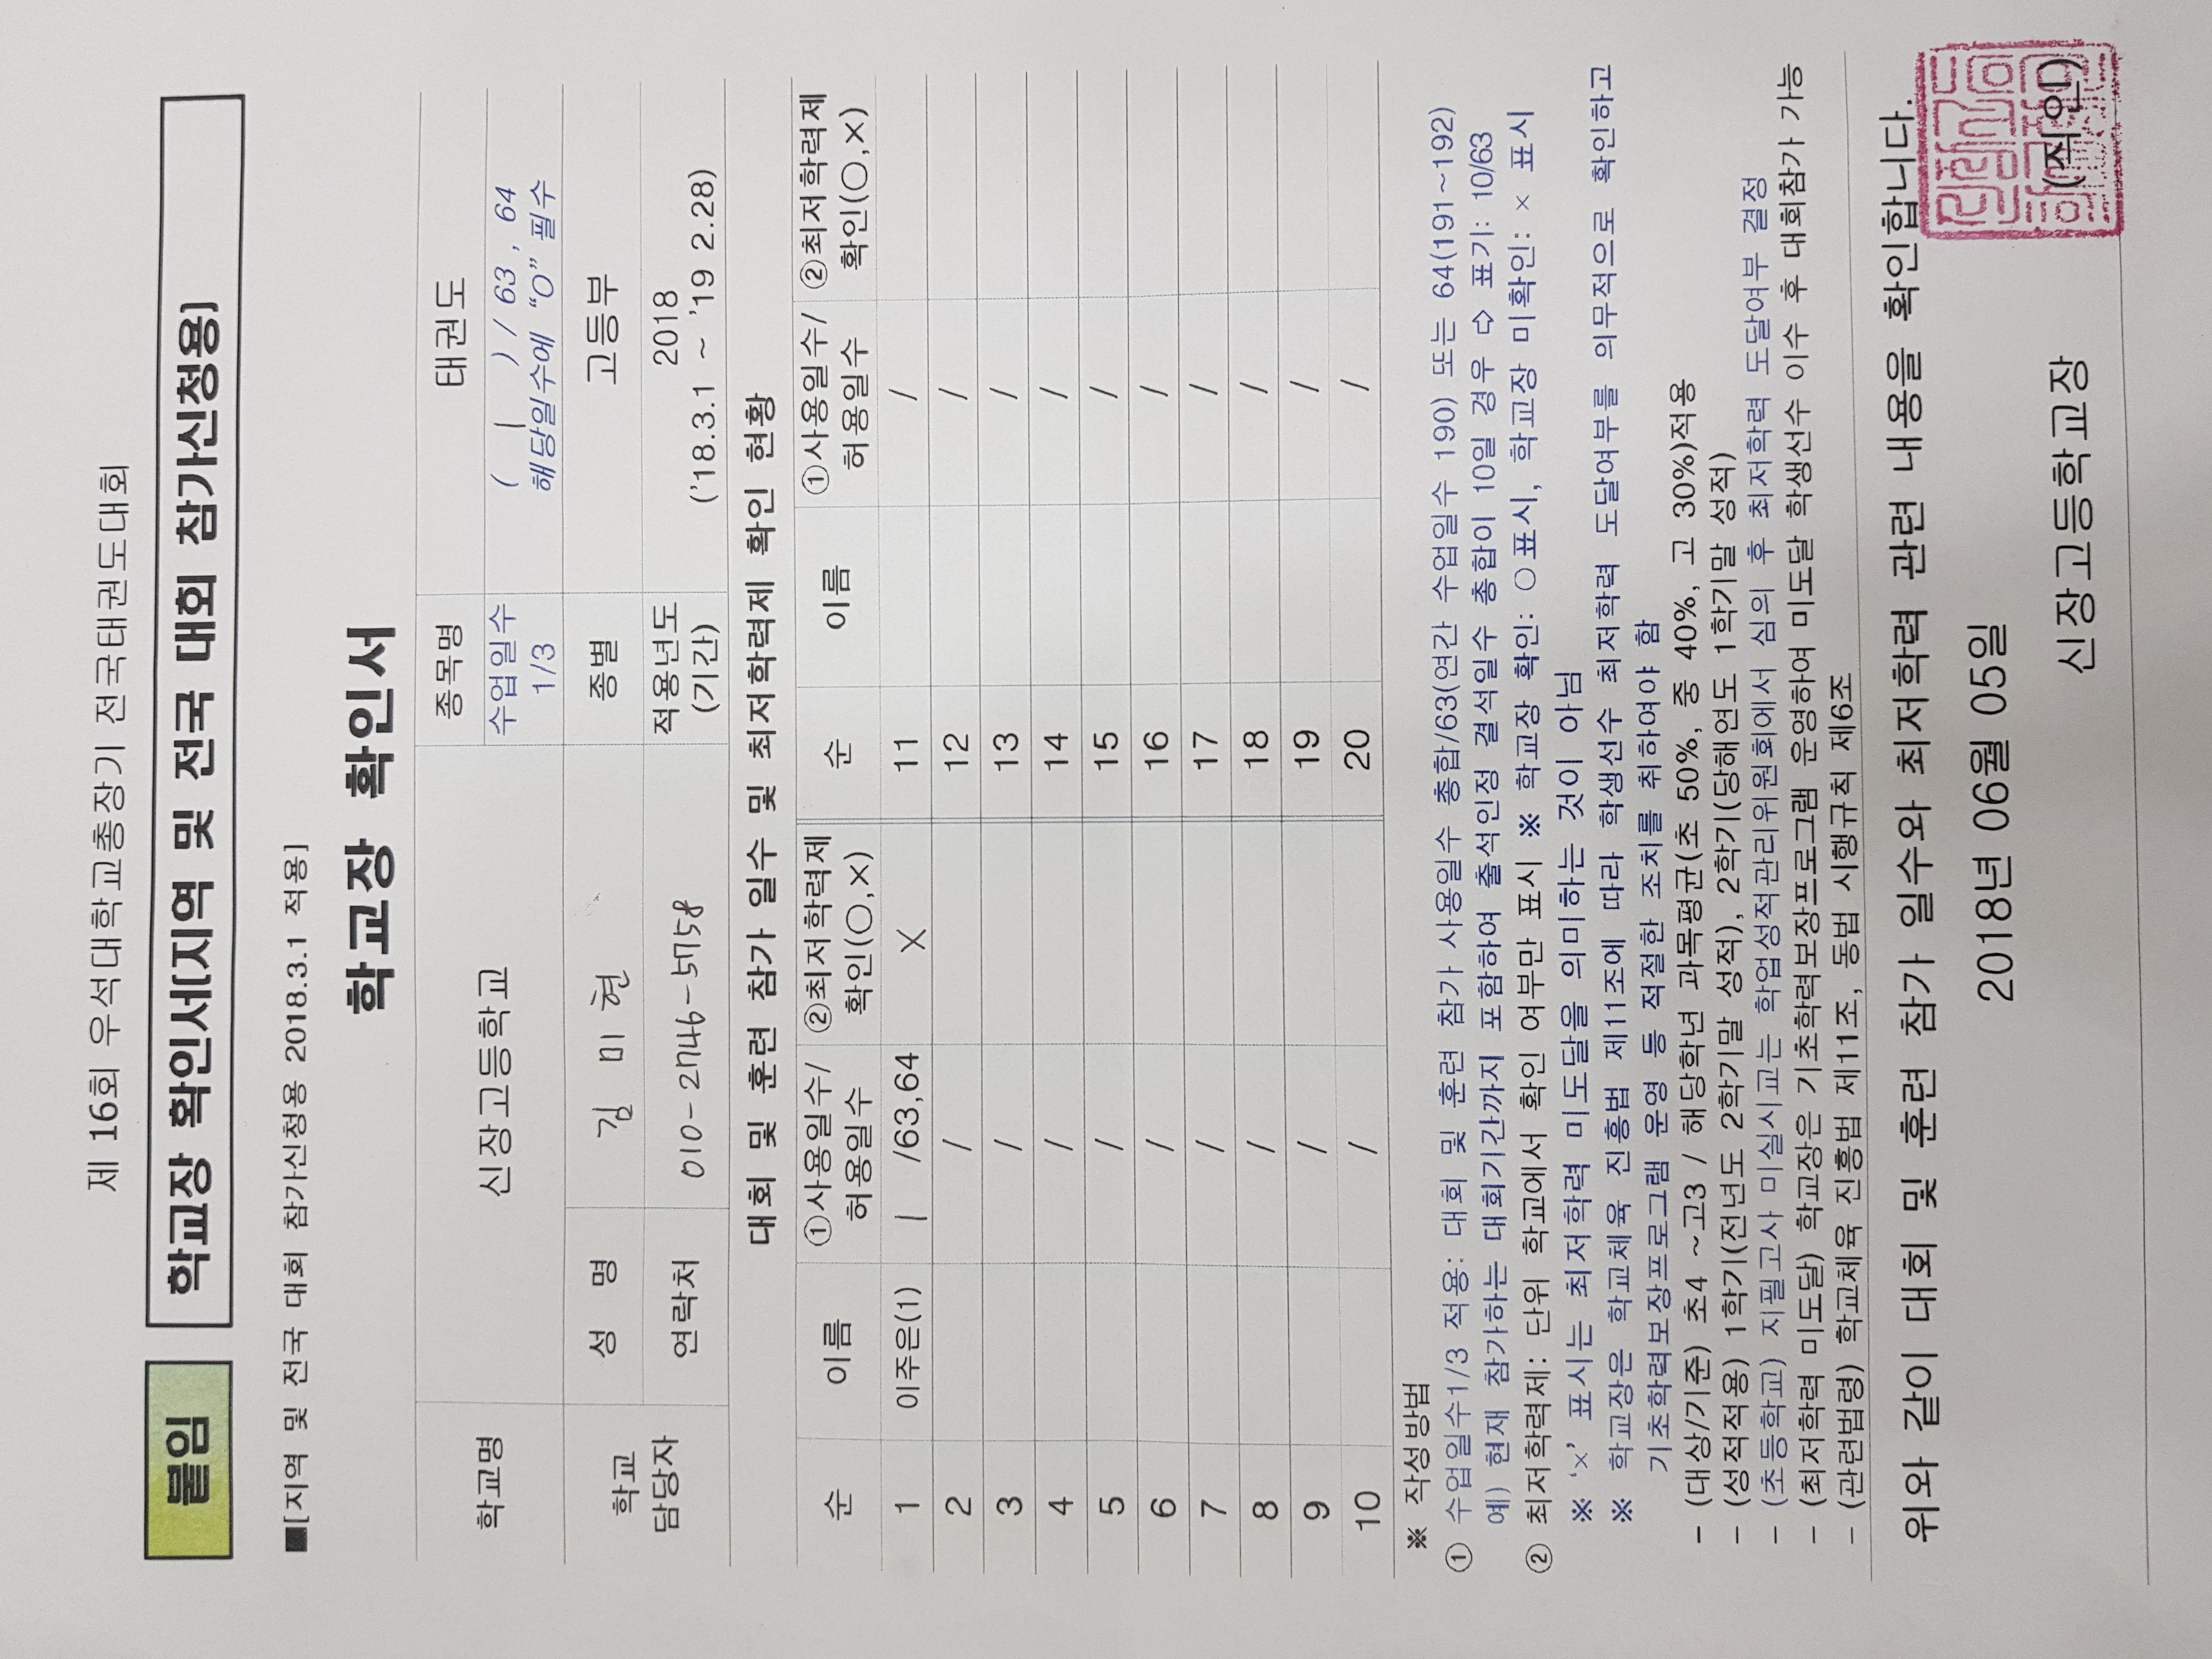 제 16회 우석대학교총장기 전국태권도대회
붙임 학교장 확인서(지역 및 전국 대회 참가신청용)
■[지역 및 전국 대회 참가신청용 2018.3.1 적용]
학교장 확인서
학교명 신장고등학교 종목명 태권도
수업일수 1/3 ( 1 ) / 63, 64
해당일수에 “O” 필수
학교 담당자 성 명 김 미 현 종별 고등부
연락처 010-2746-5758 적용년도 (기간) 2018
('18.3.1 ~ '19 2.28)
대회 및 훈련 참가 일수 및 최저학력제 확인 현황
순 이름 ①사용일수/허용일수 ②최저학력제 확인(○,×) 순 이름 ①사용일수/허용일수 ②최저학력제 확인(○,×)
1 이주은(1) 1 /63,64 × 11 /
2 / 12 /
3 / 13 /
4 / 14 /
5 / 15 /
6 / 16 /
7 / 17 /
8 / 18 /
9 / 19 /
10 / 20 /
※ 작성방법
① 수업일수1/3 적용: 대회 및 훈련 참가 사용일수 총합/63(연간 수업일수 190) 또는 64(191~192)
예) 현재 참가하는 대회기간까지 포함하여 출석인정 결석일수 총합이 10일 경우 ⇨ 표기: 10/63
② 최저학력제: 단위 학교에서 확인 여부만 표시 ※ 학교장 확인: ○표시, 학교장 미확인: × 표시
※ ‘×’ 표시는 최저학력 미도달을 의미하는 것이 아님
※ 학교장은 학교체육 진흥법 제11조에 따라 학생선수 최저학력 도달여부를 의무적으로 확인하고
기초학력보장프로그램 운영 등 적절한 조치를 취하여야 함
- (대상/기준) 초4 ~고3 / 해당학년 과목평균(초 50%, 중 40%, 고 30%)적용
- (성적적용) 1학기(전년도 2학기말 성적), 2학기(당해연도 1학기말 성적)
- (초등학교) 지필고사 미실시교는 학업성적관리위원회에서 심의 후 최저학력 도달여부 결정
- (최저학력 미도달) 학교장은 기초학력보장프로그램 운영하여 미도달 학생선수 이수 후 대회참가 가능
- (관련법령) 학교체육 진흥법 제11조, 동법 시행규칙 제6조
위와 같이 대회 및 훈련 참가 일수와 최저학력 관련 내용을 확인합니다.
2018년 06월 05일
신장고등학교장 (직인)